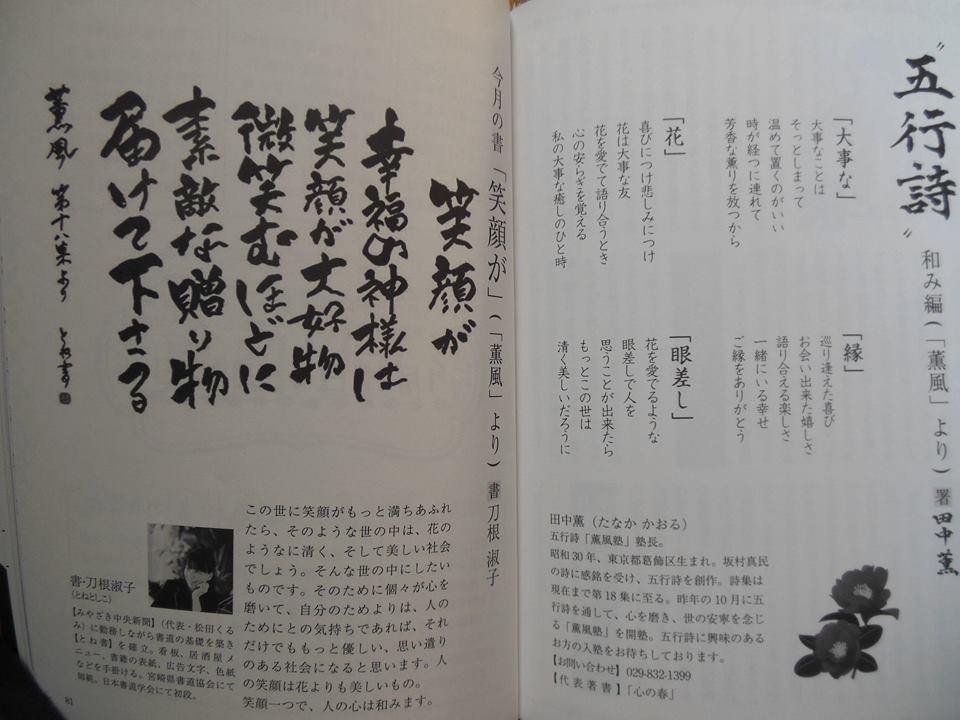 〝五行詩〟 和み編(「薫風」より) 署 田中 薫
「大事な」
大事なことは
そっとしまって
温めて置くのがいい
時が経つに連れて
芳香な薫りを放つから
「花」
喜びにつけ悲しみにつけ
花は大事な友
花を愛でて語り合うとき
心の安らぎを覚える
私の大事な癒しのひと時
「縁」
巡り逢えた喜び
お会い出来た嬉しさ
語り合える楽しさ
一緒にいる幸せ
ご縁をありがとう
「眼差し」
花を愛でるような
眼差しで人を
思うことが出来たら
もっとこの世は
清く美しいだろうに
田中薫(たなか かおる)
五行詩「薫風塾」塾長。
昭和30年、東京都葛飾区生まれ。坂村真民
の詩に感銘を受け、五行詩を創作。詩集は
現在まで第18集に至る。昨年の10月に五
行詩を通して、心を磨き、世の安寧を念じ
る「薫風塾」を開塾。五行詩に興味のある
お方の入塾をお待ちしております。
【お問い合わせ】029-832-1399
【代表著書】「心の春」
今月の書 「笑顔が」(「薫風」より) 書 刀根 淑子
笑顔が
幸福の神様は
笑顔が大好物
微笑むほどに
素敵な贈り物
届けて下さる
薫風 第十八集より とね書
この世に笑顔がもっと満ちあふれ
たら、そのような世の中は、花の
ように清く、そして美しい社会
でしょう。そんな世の中にしたい
ものです。そのために個々が心を
磨いて、自分のためよりは、人の
ためにとの気持ちであれば、それ
だけでももっと優しい、思い遣り
のある社会になると思います。人
の笑顔は花よりも美しいもの。
笑顔一つで、人の心は和みます。
書・刀根淑子
(とねとしこ)
【みやざき中央新聞】(代表・松田くる
み)に勤務しながら書道の基礎を築き
【とね書】を確立。看板、居酒屋メ
ニュー、書籍の表紙、広告文字、色紙
などを手掛ける。宮崎県書道協会にて
師範。日本書道学会にて初段。
81